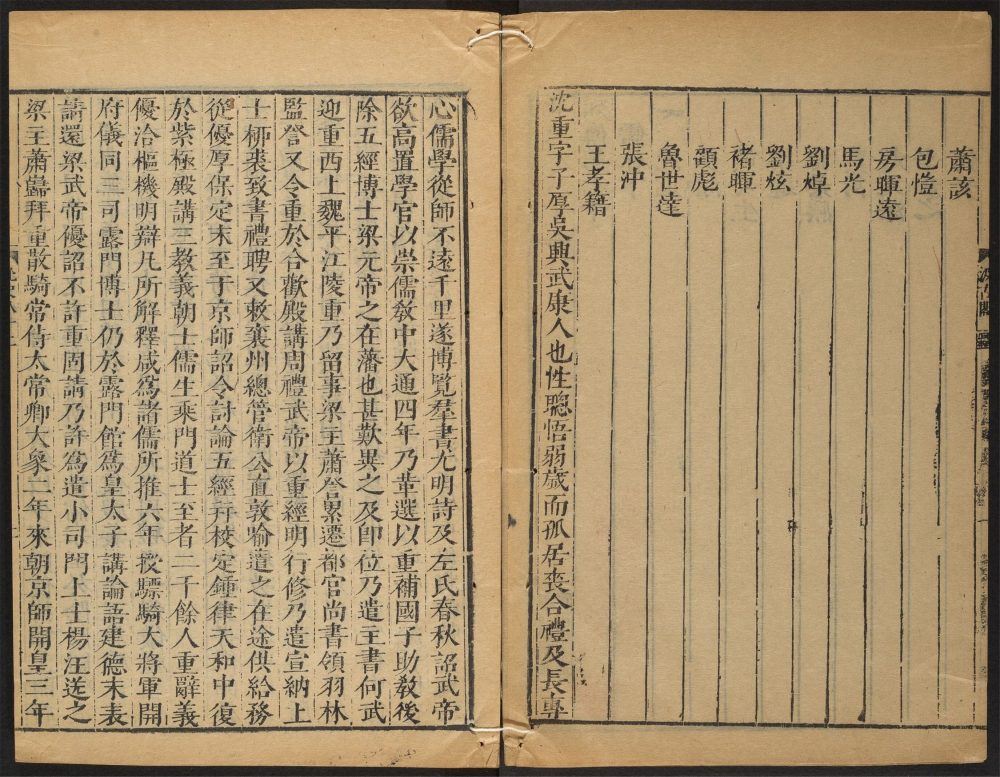 蕭該
包愷
房暉遠
馬光
劉焯
劉炫
褚暉
顧彪
魯世達
張沖
王孝籍
沈重字子厚吳興武康人也性聰悟弱歲而孤居喪合禮及長專
心儒學從師不遠千里遂博覽羣書尤明詩及左氏春秋詔武帝
欲高置學官以崇儒教中大通四年乃革選以重補國子助教後
除五經博士梁元帝之在藩也甚歎異之及即位乃遣主書何武
迎重西上魏平江陵重乃留事梁主蕭詧累遷都官尚書領羽林
監詧又令重於合歡殿講周禮武帝以重經明行修乃遣宣納上
士柳裘致書禮聘又敕襄州總管衛公直敦喻遣之在途供給務
從優厚保定末至于京師詔令討論五經并校定鍾律天和中復
於紫極殿講三教義朝士儒生桑門道士至者二千餘人重辭義
優洽樞機明辯凡所解釋咸爲諸儒所推六年授驃騎大將軍開
府儀同三司露門博士仍於露門館爲皇太子講論語建德末表
請還梁武帝優詔不許重固請乃許爲遣小司門上士楊汪送之
梁主蕭巋拜重散騎常侍太常卿大象二年來朝京師開皇三年